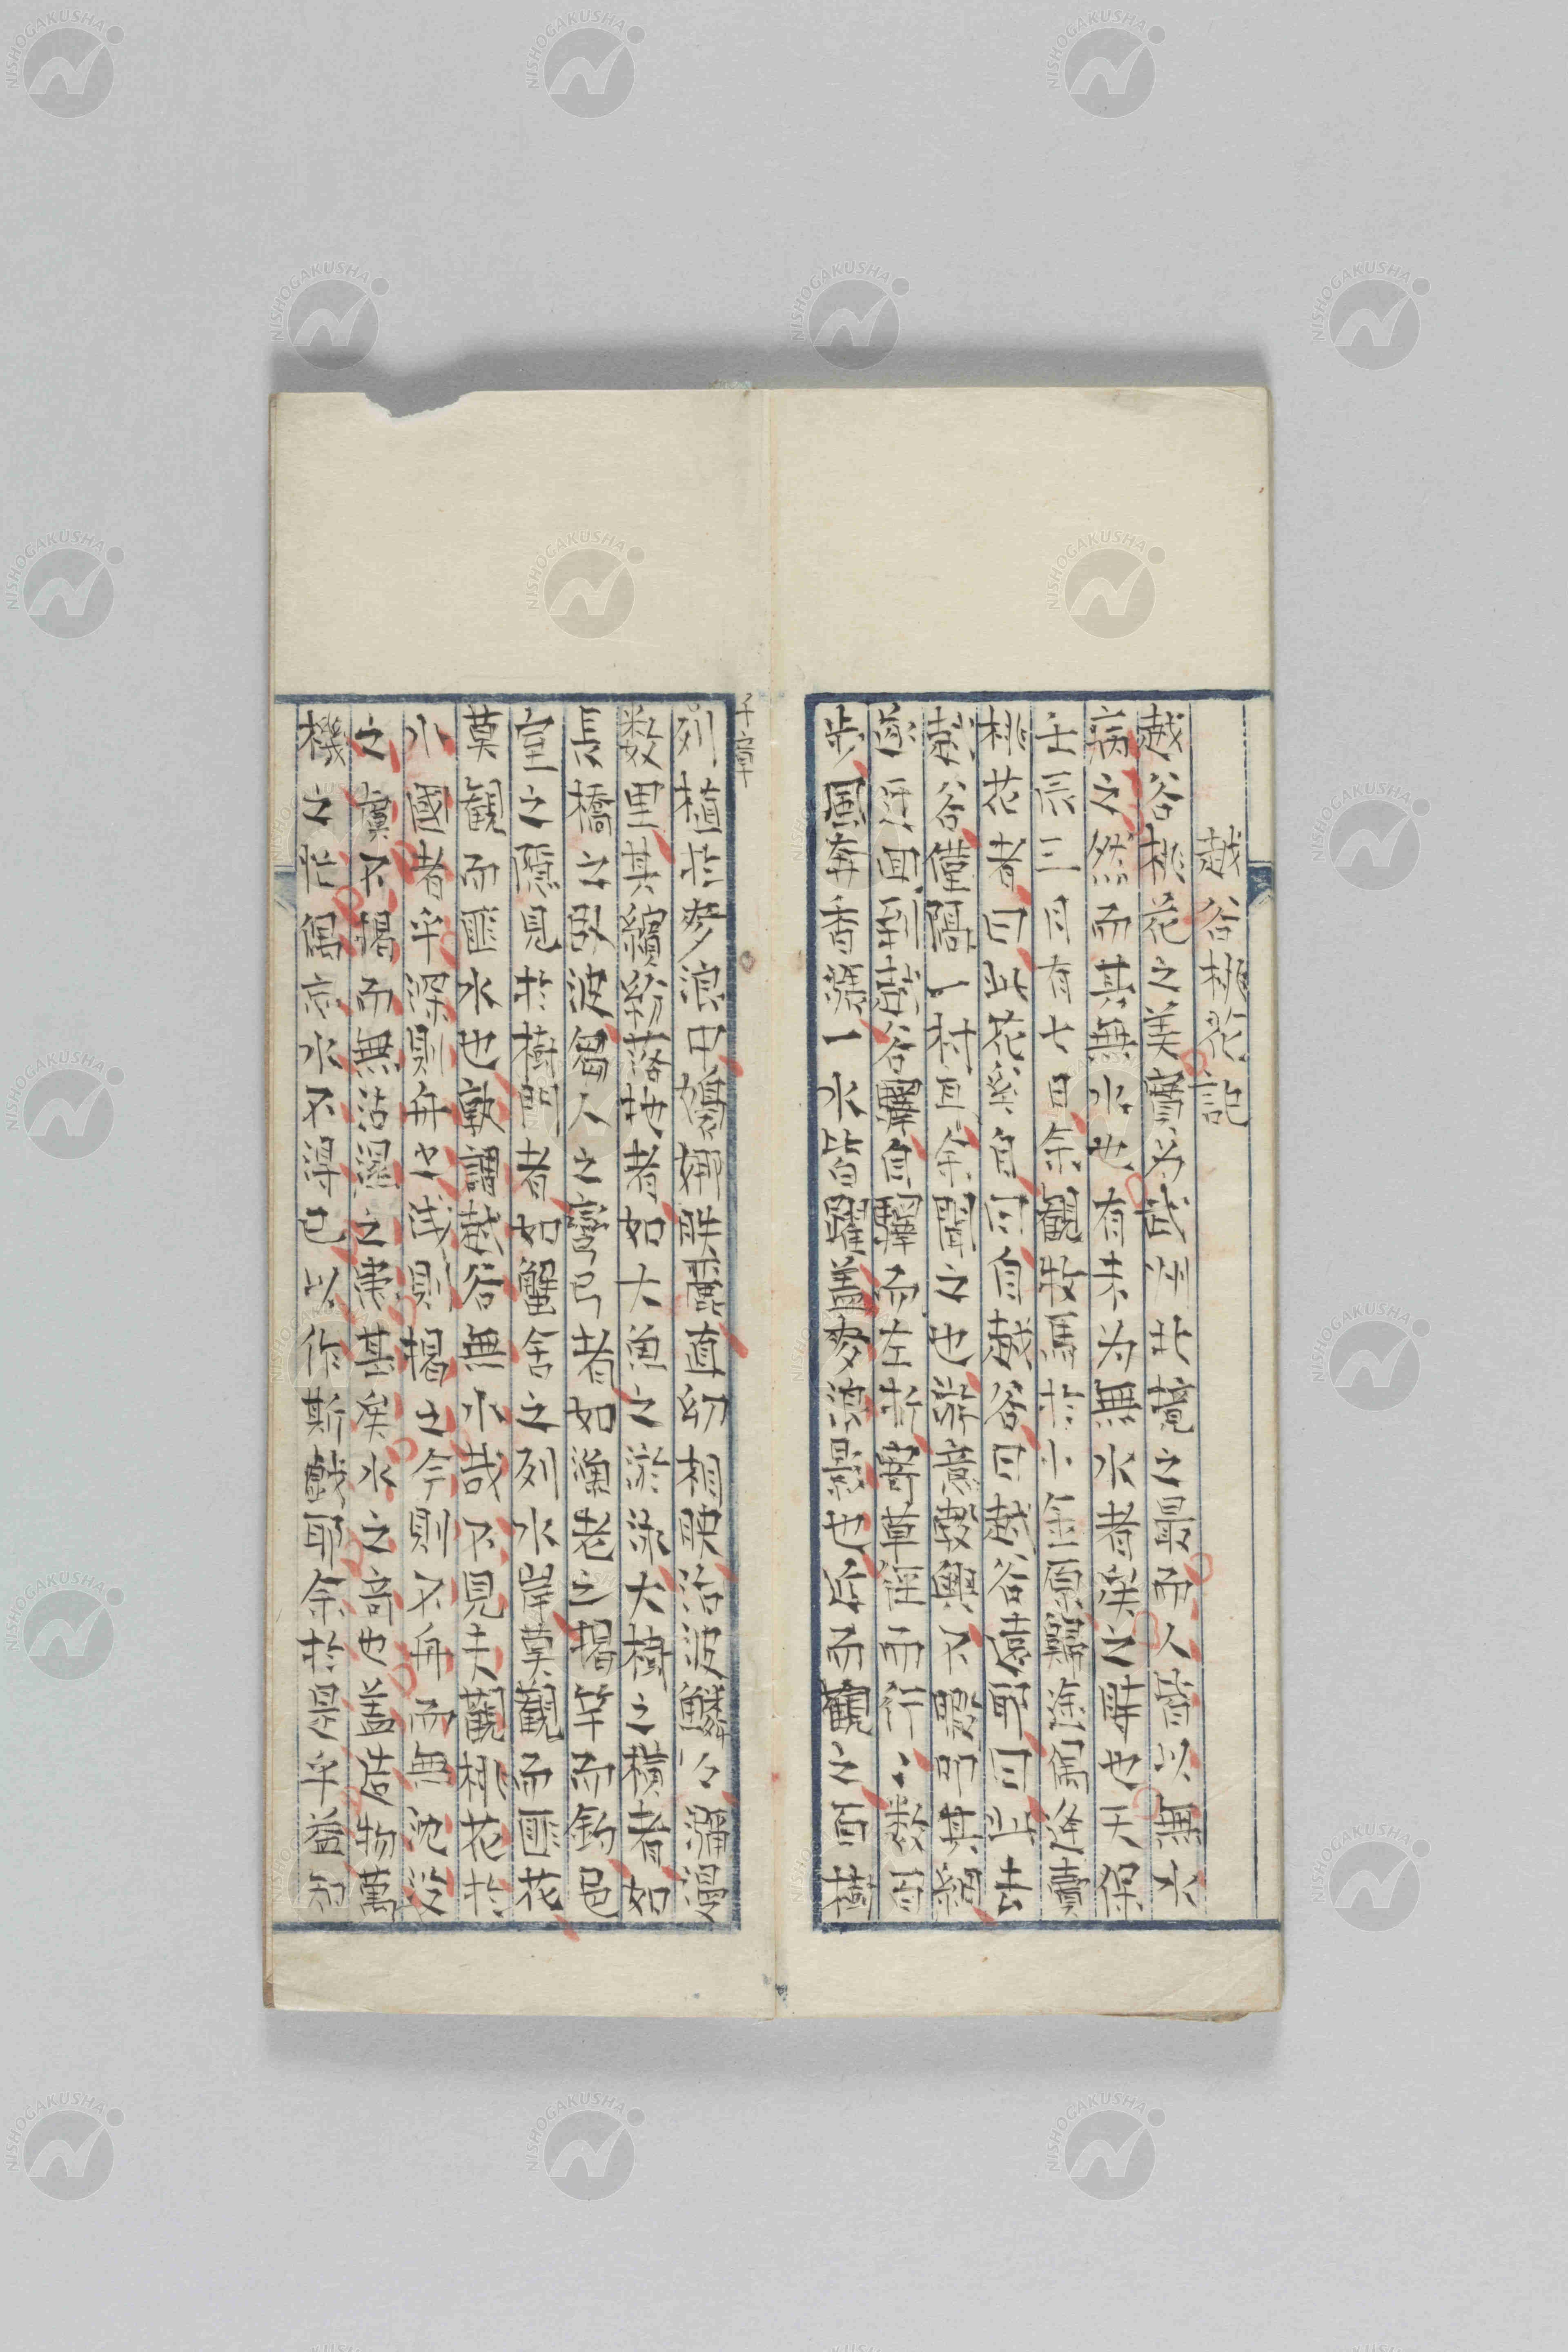 越谷桃花記
越谷桃花之美實為武州北境之最而人皆以無水
病之然而其無水也有未为無水者矣之時也天保
壬辰三月有七日余觀牧馬於小金原歸途偶逢賣
桃花者曰此花奚自曰自越谷曰越谷遠耶曰此去
越谷僅隔一村且余聞之也遊意勃興不暇叩其細
遂迂回到越谷驛自驛而左折寄草徑而行々数百
步風奔香漲一水皆躍蓋麥浪影也近而觀之百樹
列植於麥浪中嬝娜跌麗直幼相映活波鱗々瀰漫
数里其繽紛落地者如大魚之游泳大樹之橫者如
長橋之臥波芻人之彎弓者如漁老之揭竿而釣邑
室之隱見於樹間者如蟹舍之列水岸莫觀而匪花
莫觀而匪水也孰謂越谷無水哉不見夫觀桃花於
水國者乎深則舟之淺則揭之今則不舟而無沈没
之虞不揭而無沾濕之患甚矣水之奇也蓋造物萬
機之忙偶忘水不得已以作斯戲耶余於是乎益知
子章
NISHOGAKUSHA